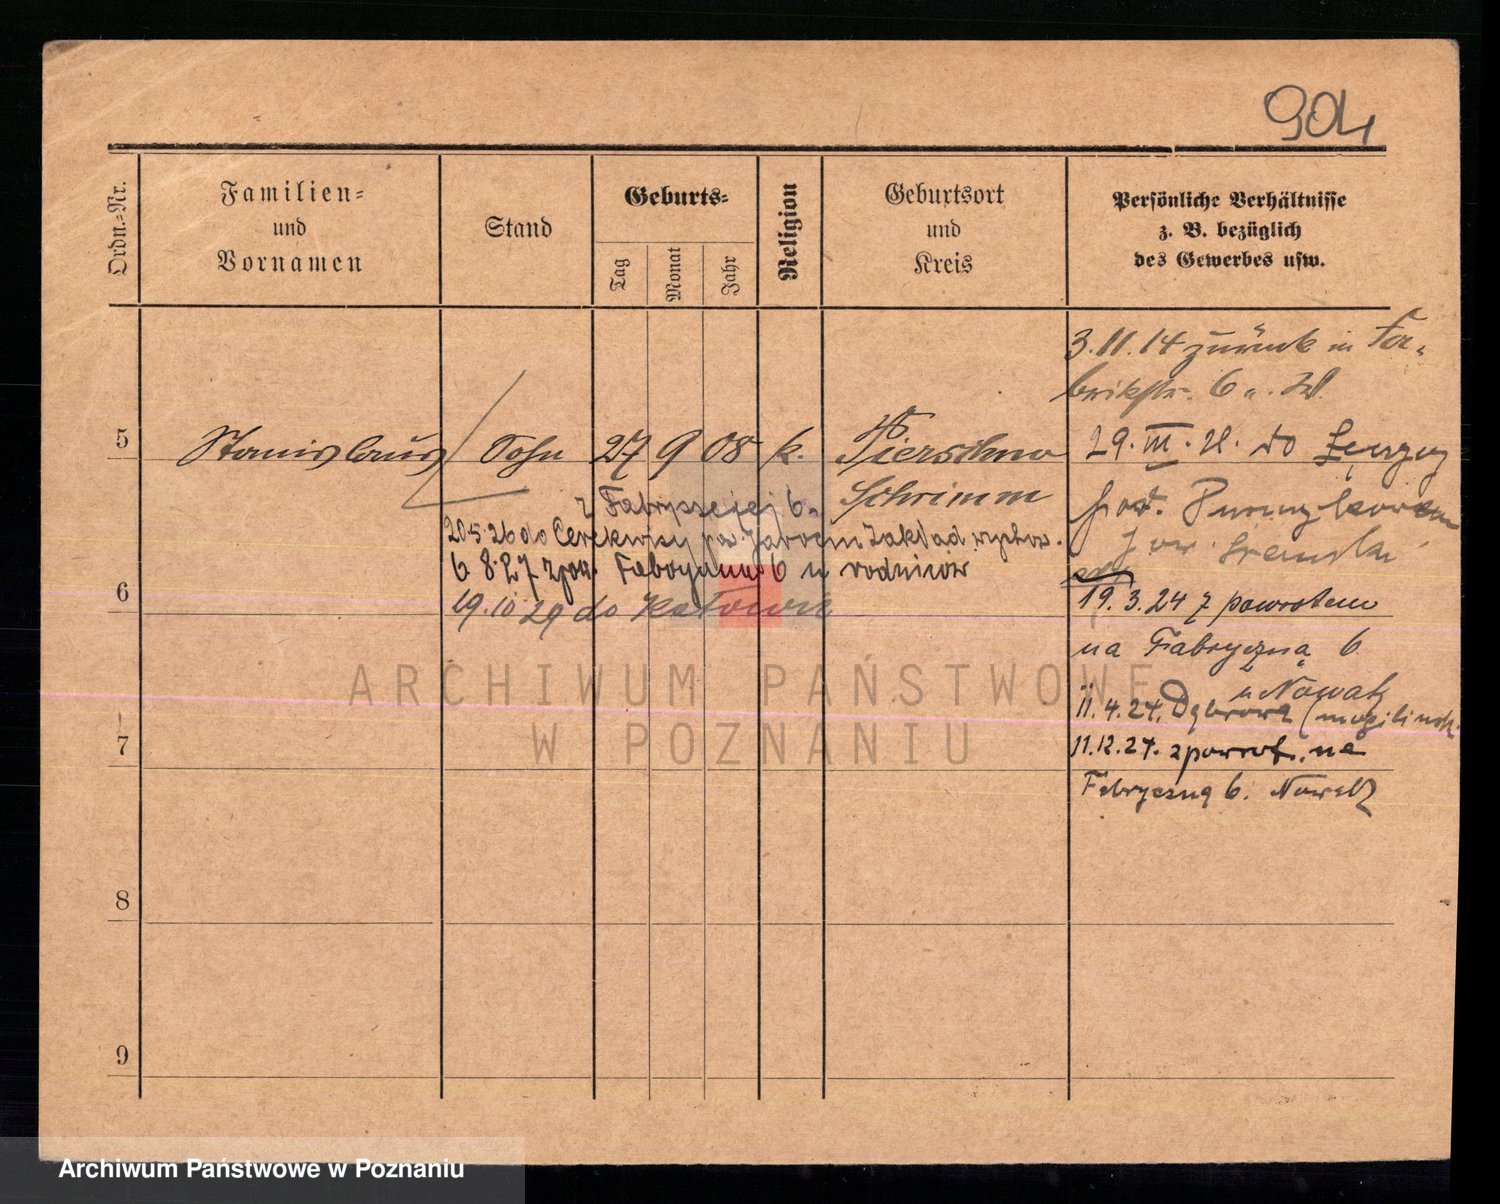 904
Ordn.=Nr.
Familien=
und
Vornamen
Stand
Geburts=
Tag
Monat
Jahr
Religion
Geburtsort
und
Kreis
Persönliche Verhältnisse
z. B. bezüglich
des Gewerbes usw.
3.11.14 zurück in Fa-
brikstr. 6
5
Stanislaus
Sohn
27
9
08
k.
Pierschno
Schrimm
29.III. 21. do
z Fabrycznej 6.
20.5.26 do Cerekwicy pow. Jarocin Zakład wychow.
6 8.27 z pow. Fabryczna 6 u rodziców
19.10 29 do Katowic
6
19.3.24 z powrotem
na Fabryczną 6
u Nowak
11.4.24. Dąbrowa (mogilinsk.
7
11.12.24. z powrot. na
Fabryczną 6. Nowak
8
9
ARCHIWUM PAŃSTWOWE
W POZNANIU
Archiwum Państwowe w Poznaniu